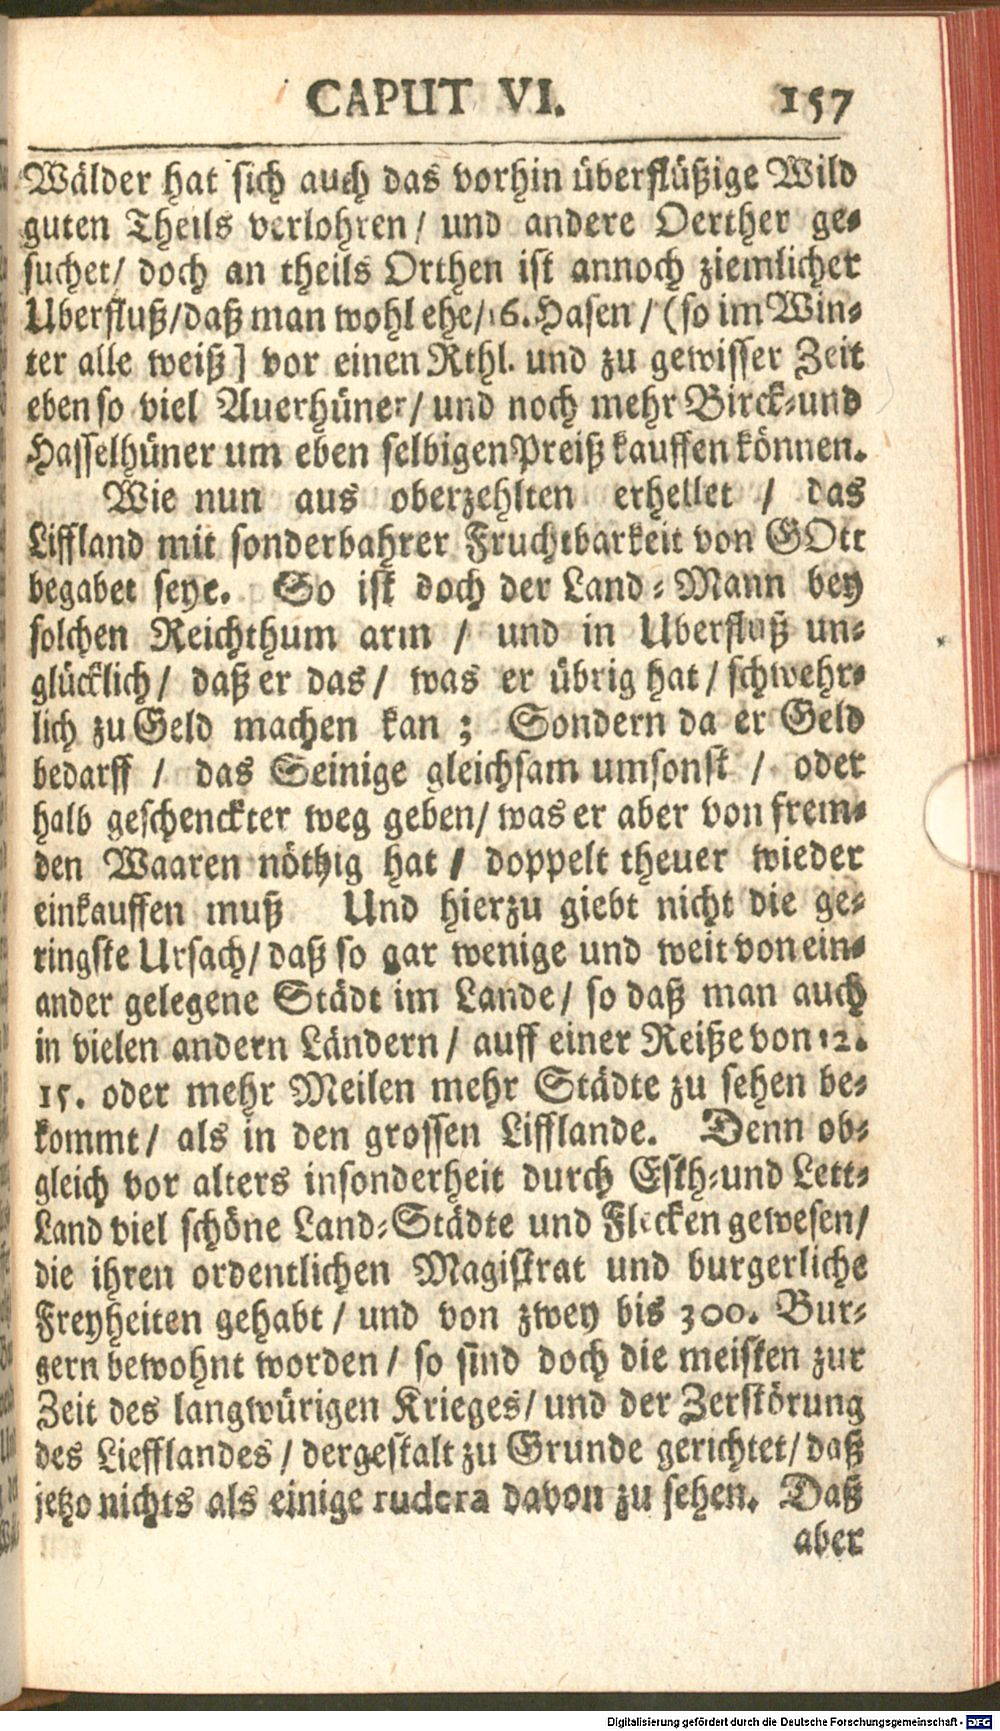 CAPUT VI. 157
Wälder hat sich auch das vorhin überflüßige Wild
guten Theils verlohren / und andere Oerther ge-
suchet / doch an theils Orthen ist annoch ziemlicher
Uberfluß / daß man wohl ehe / 16. Hasen / (so im Win-
ter alle weiß] vor einen Rthl. und zu gewisser Zeit
eben so viel Auerhüner / und noch mehr Birck-und
Hasselhüner um eben selbigen Preiß kauffen können.
Wie nun aus oberzehlten erhellet / das
Liffland mit sonderbahrer Fruchtbarkeit von GOtt
begabet seye. So ist doch der Land-Mann bey
solchen Reichthum arm / und in Uberfluß un-
glücklich / daß er das / was er übrig hat / schwehr-
lich zu Geld machen kan ; Sondern da er Geld
bedarff / das Seinige gleichsam umsonst / oder
halb geschenckter weg geben / was er aber von frem-
den Waaren nöthig hat / doppelt theuer wieder
einkauffen muß Und hierzu giebt nicht die ge-
ringste Ursach / daß so gar wenige und weit von ein-
ander gelegene Städt im Lande / so daß man auch
in vielen andern Ländern / auff einer Reiße von 12.
15. oder mehr Meilen mehr Städte zu sehen be-
kommt / als in den grossen Lifflande. Denn ob-
gleich vor alters insonderheit durch Esth-und Lett-
Land viel schöne Land-Städte und Flecken gewesen /
die ihren ordentlichen Magistrat und burgerliche
Freyheiten gehabt / und von zwey bis 300. Bur-
gern bewohnt worden / so sind doch die meisten zur
Zeit des langwürigen Krieges / und der Zerstörung
des Liefflandes / dergestalt zu Grunde gerichtet / daß
jetzo nichts als einige rudera davon zu sehen. Daß
aber
Digitalisierung gefördert durch die Deutsche Forschungsgemeinschaft - DFG